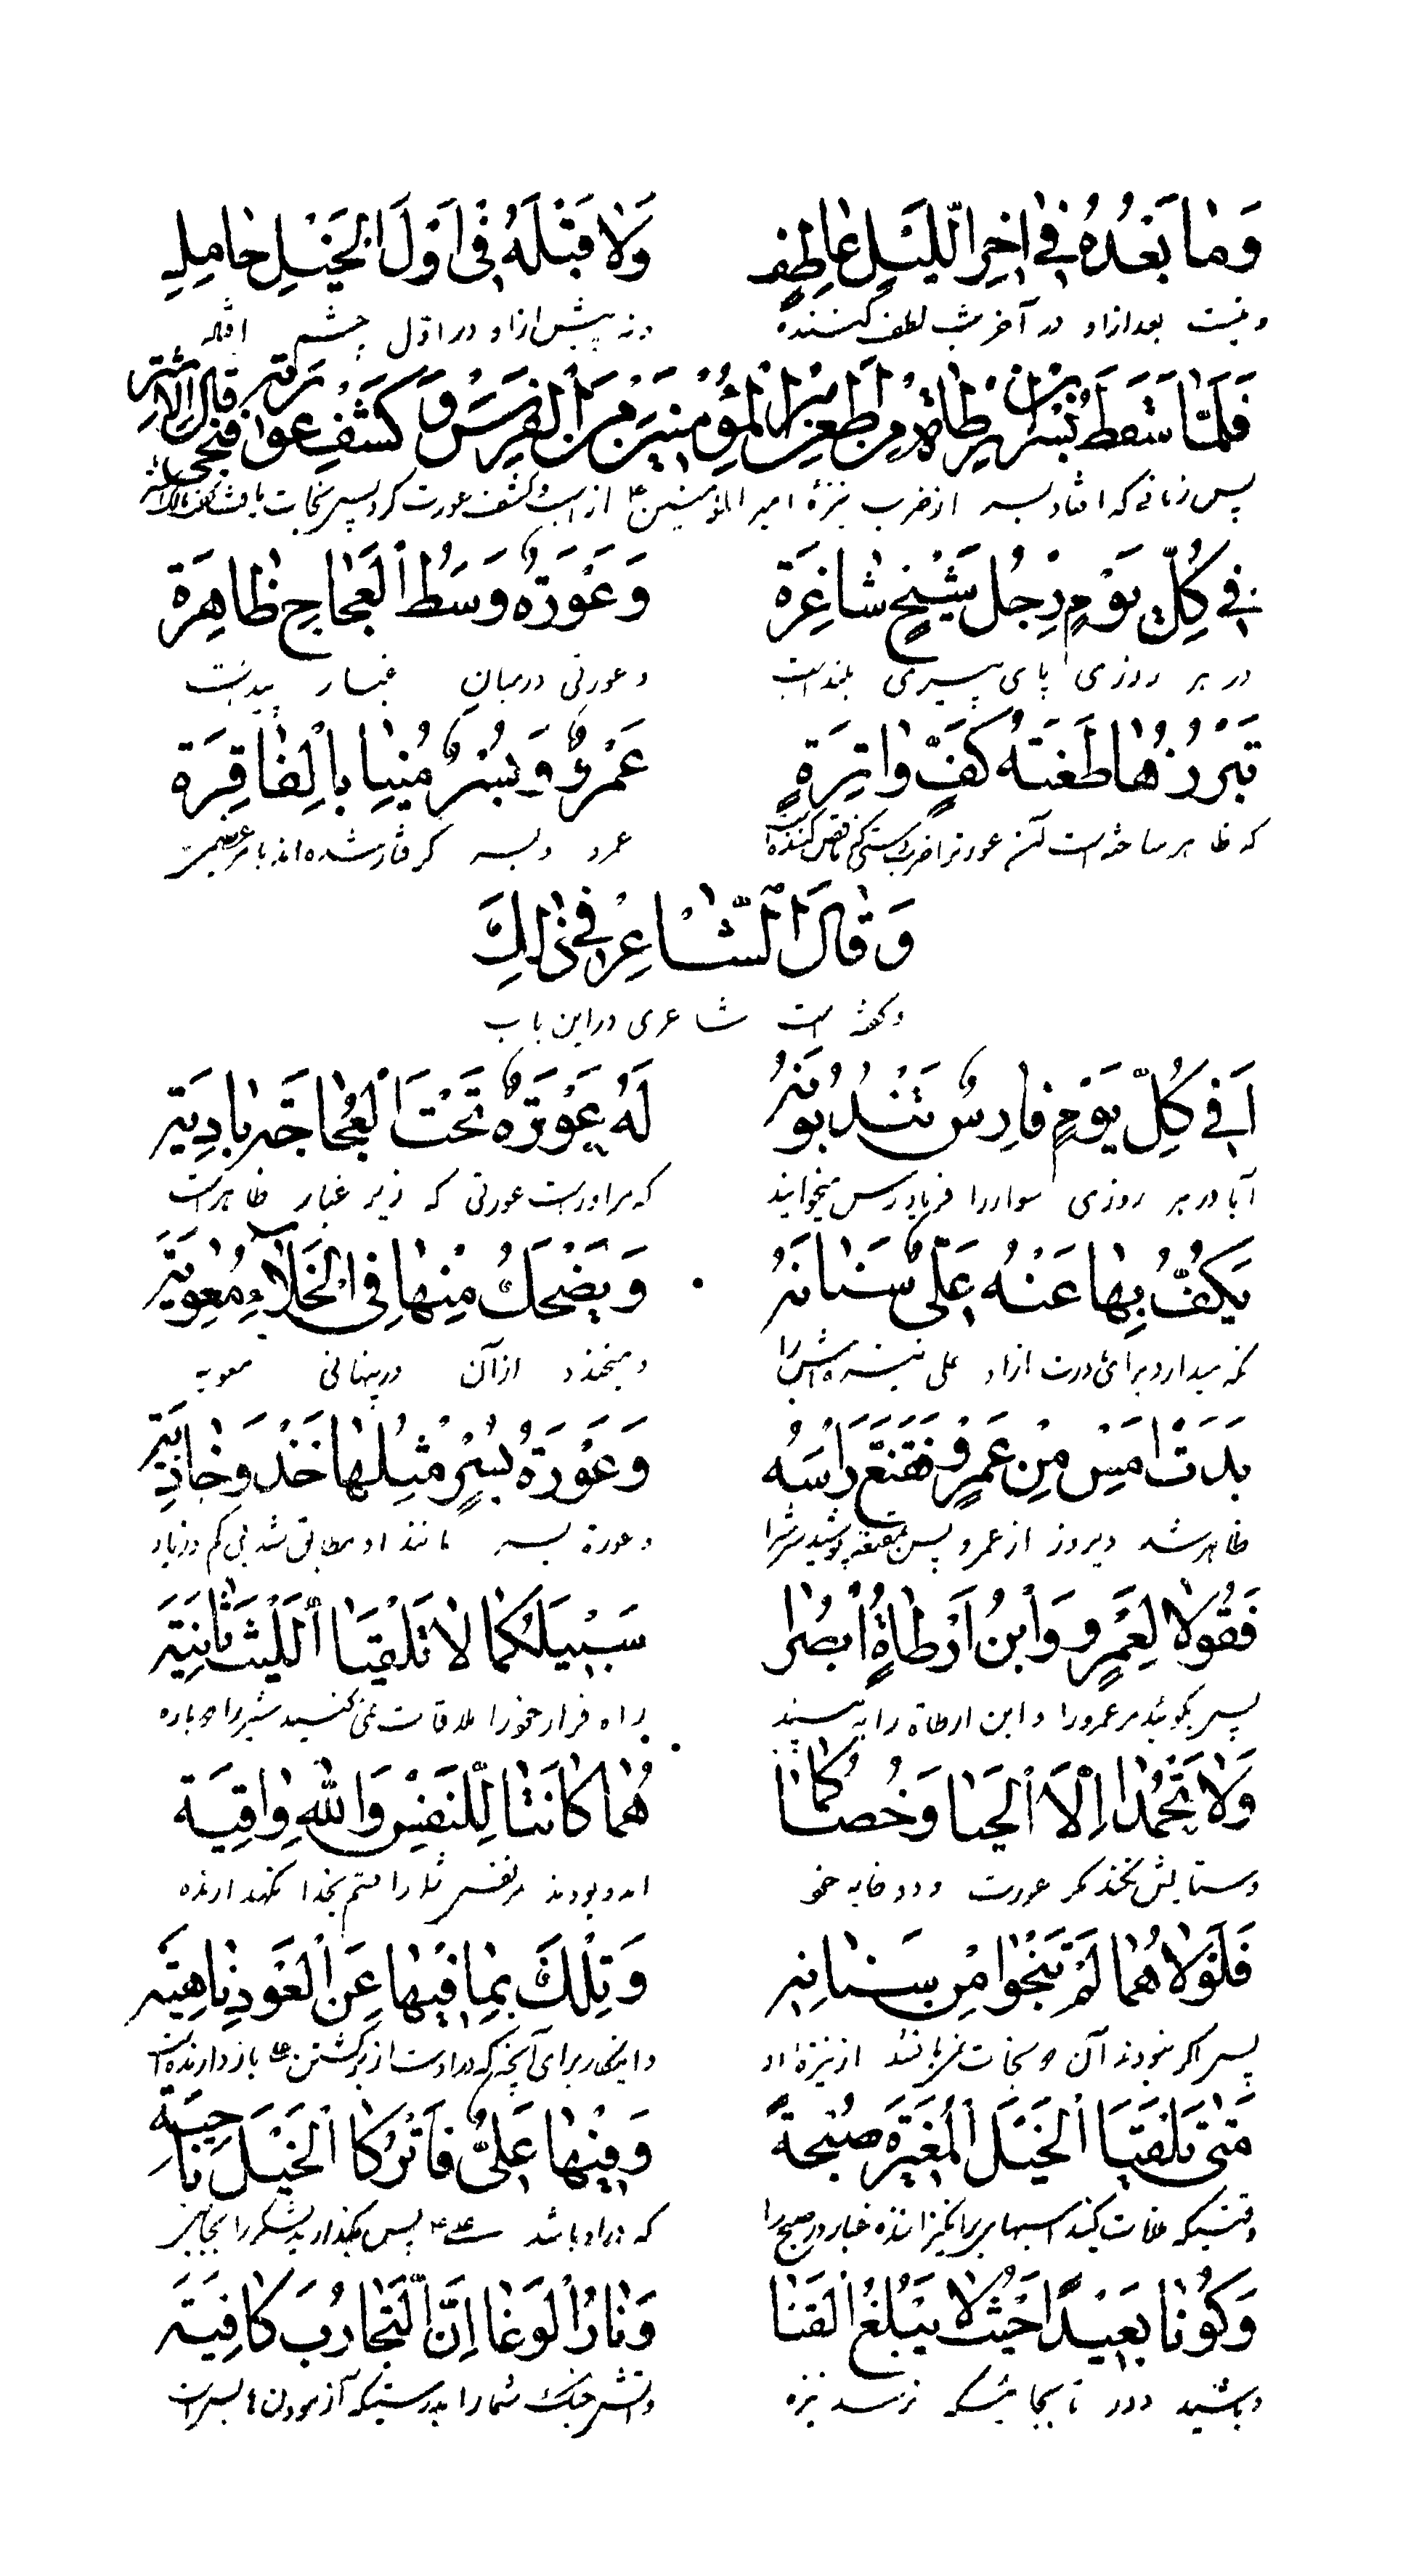 وَمٰا بَعْدُهُ فِي اٰخِرِ الَّليْلِ عٰاطِفٍ وَلٰا قَبْلَهُ فِى اَوَّلَ الْخَيْلِ حٰامِلِهِ
و نیست بعد از او در آخر شب لطف کننده و نه پیش از او در اوّل چشم
فَلَمّٰا سَقَطَ بُسْرُ ابْنُ اَرْطٰاةَ مِنْ طَعْنِ اَمِيْرِ الْمُؤْمِنِيْنَ مِنَ الْفَرَسِ وَ كَشَفَ عَوْرَتَهُ فَنَجٰى قٰالَ الْاَشْتَر
پس زمانی که افتاد بسر از ضرب نیزهٔ امیر المؤمنین ع از اسب و کشف عورت کرد پس نجات یافت مالک اشتر
فِي كُلِّ يَوْمٍ رِجْلُ شَيْخٍ شٰاغِرَة وَ عَوْرَةٌ وَسَطُ الْعَجٰاجِ ظٰاهِرَة
در هر روزی پای پیری بلند است و عورتی در میان غبار پیداست
تَبْرُزُهٰا طَعْنَتُهُ كَفٍّ وٰاتِرَةٍ عَمْرٌو وَ بُسْرٌ مُنِيٰا بِالْفٰاقِرَة
که ظاهر ساخته است آن عورترا ضربت دستی کمر نقص کننده عمرو و بسر گرفتار شده اند با
وَ قٰالَ الشّٰاعِرُ فِي ذٰلِكَ
و گفته است شاعری در این باب
اَفِي كُلِّ يَوْمٍ فٰارِسٌ تَنْدُبُونَهُ لَهُ عَوْرَةٌ تَحْتَ الْعُجٰاجَةِ بٰادِيَة
آیا در هر روزی سوار را فریاد رس میخوانید که مر او راست عورتی که زیر غبار ظاهر است
يَكُفُّ بِهٰا عَنْهُ عَلِىٌّ سَنٰانَهُ وَ يَضْحَكُ مِنْهٰا فِى الْخَلآءِ مُعٰوِيَة
نگه میدارد برای عورت از او علی نیزه اش را و میخندد از آن در پنهانی معویه
بَدَتْ اَمْسِ مِنْ عَمْرٍو فَقَنَّعَ رَاْسَهُ وَ عَوْرَةُ بُسْرٍ مِثْلُهٰا حَذْوَ حٰاذِيَة
ظاهر شد دیروز از عمرو پس مقنعه پوشید سرش را و عورة بسر مانند او مطابق شد بی کم و زیاد
فَقُولٰا لِعَمْرٍو وَ ابْنُ اَرْطٰاةٍ اُبْصُرٰا سَبِيْلَكُمٰا لٰا تَلْقَيٰا الَّليْثَ ثٰانِيَة
پس بگوئید مر عمرو را و ابن ارطاة را به بینید راه فرار خود را ملاقات نمی کنید شیر را دوباره
وَلٰا تَحْمَدٰا اِلَّا الْحَيٰا وَ خُصٰاكُمٰا هُمٰا كٰانَتٰا لِلنَّفْسِ وَ اللهِ وٰاقِيَة
و ستایش نکنند مگر عورت و دو خایه خود اندو بودند مر نفس شما را قسم بخدا نگهدارنده
فَلَوْلٰا هُمٰا لَمْ تَنْجُوٰا مِنْ سَنٰانِهِ وَ تِلْكَ بِمٰا فِيْهٰا عَنِ الْعَوْدِ نٰاهِيَة
پس اگر نبودند آن دو نجات نمی یافتند از نیزه او و اینکار برای آنچه که در او است از برگشتن باز دارنده است
مَتٰى تَلْقَيٰا الْخَيْلَ الْمُغِيْرَةَ صُبْحَةً وَ فِيْهٰا عَلِىٌّ فَاتْرُكٰا الْخَيْلَ نٰاحِيَة
وقتیکه ملاقات کنید اسبها بر انگیزاننده غبار در صبح را که در او باشد علی ع پس بگذارید لشکر را
وَ كُونٰا بَعِيْدًا حَيْثُ لٰا يَبْلُغُ الْقَنٰا وَ نٰارُ الْوَغٰا اِنَّ التَّجٰارُبَ كٰافِيَة
و باشید دور تا بجائیکه نرسد نیزه و آتش جنگ شما را بدرستیکه آزمودن ها بس است